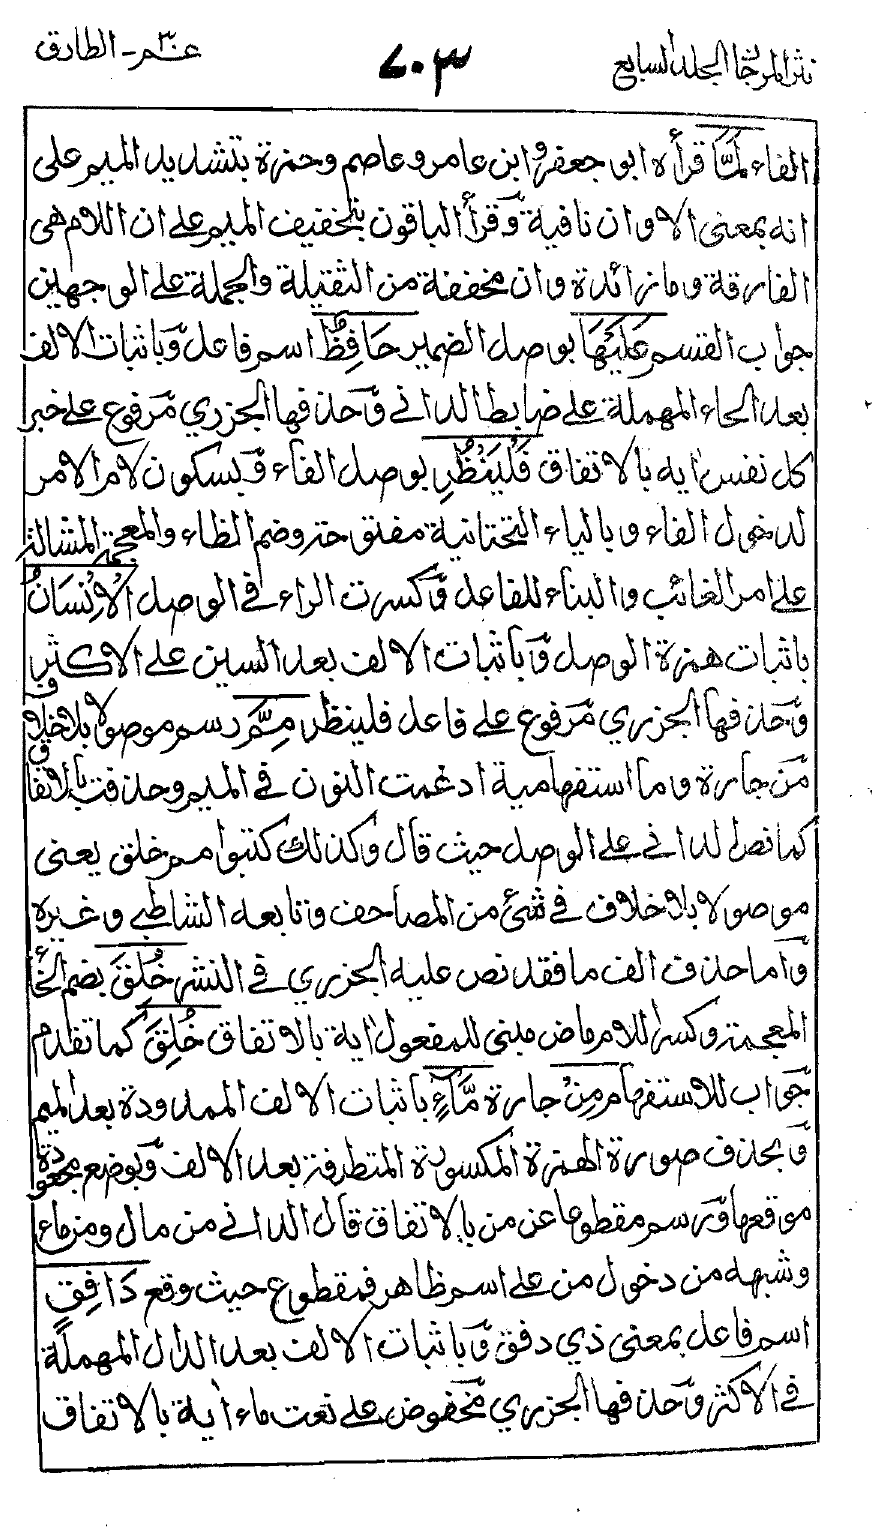 نثر المرجان المجلد السابع
٧٠٣
عم ٣٠ - الطارق
الفاء لَمَّا قرأه ابو جعفر وابن عامر وعاصم وحمزة بتشديد الميم على
انه بمعنى الا وان نافية وقرأ الباقون بتخفيف الميم على ان اللام هى
الفارقة وما زائدة وان مخففة من الثقيلة والجملة على الوجهين
جواب القسم عَلَيْهَا بوصل الضمير حَافِظٌ اسم فاعل وباثبات الالف
بعد الحاء المهملة على ضابط الدانى وحذفها الجزري مرفوع على خبر
كل نفس اية بالاتفاق فَلْيَنْظُرِ بوصل الفاء وبسكون لام الامر
لدخول الفاء وبالياء التحتانية مفتوحة وضم الظاء والمعجمة المشالة
على امر الغائب والبناء للفاعل وكسرت الراء فى الوصل الْاِنْسَانُ
باثبات همزة الوصل وباثبات الالف بعد السين على الاكثر
وحذفها الجزري مرفوع على فاعل فلينظر مِمَّ رسم موصولا بلا خلاف
من جارة وما استفهامية ادغمت النون فى الميم وحذفت بالاتفاق
كما نص الدانى على الوصل حيث قال وكذلك كتبوا مم خلق يعنى
موصولا بلا خلاف فى شئ من المصاحف وتابعه الشاطبى وغيره
واما حذف الف ما فقد نص عليه الجزري فى النشر خُلِقَ بضم الخاء
المعجمة وكسر اللام ماض مبنى للمفعول اية بالاتفاق خُلِقَ كما تقدم
جواب للاستفهام مِنْ جارة مَّاءٍ باثبات الالف الممدودة بعد الميم
وبحذف صورة الهمزة المكسورة المتطرفة بعد الالف وبوضع مجعودة
موقعها ورسم مقطوعا عن من بالاتفاق قال الدانى من مال ومن ماء
وشبهه من دخول من على اسم ظاهر فمقطوع حيث وقع دَافِقٍ
اسم فاعل بمعنى ذي دفق وباثبات الالف بعد الدال المهملة
فى الاكثر وحذفها الجزري مخفوض على نعت ماء اية بالاتفاق